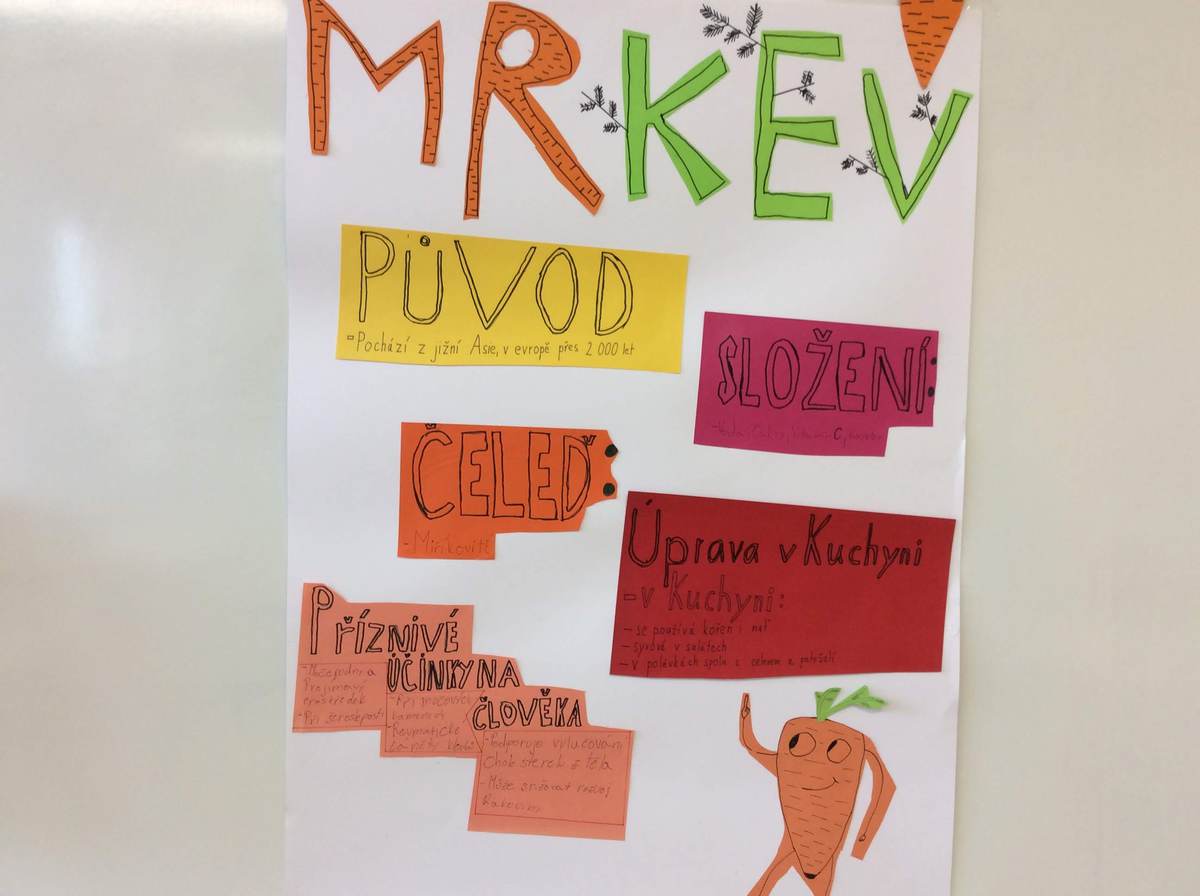 MRKEV
PŮVOD
-Pochází z jižní Asie, v evropě přes 2 000 let
SLOŽENÍ:
ČELEĎ:
-Miříkovité
Úprava v Kuchyni
-v Kuchyni:
- se používá kořen i nať
- syrová v salátech
- v polévkách spolu s celerem a petrželí
PŘÍZNIVÉ
ÚČINKY NA
ČLOVĚKA
-Při šerosleposti
-Při močových
kamenech
-Revmatické
-Podporuje vylučování
z těla
-Může snižovat rozvoj